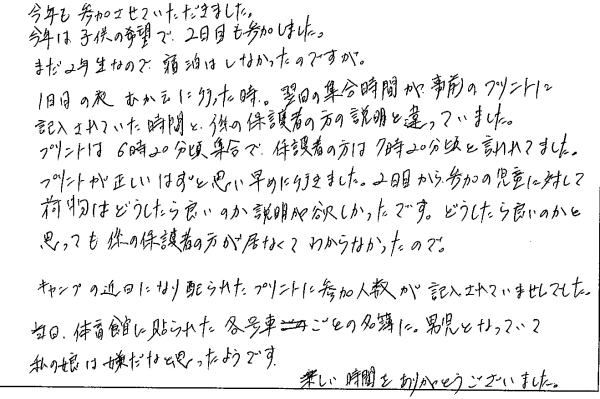 今年も参加させていただきました。
今年は子供の希望で、2日目も参加しました。
まだ2年生なので、宿泊はしなかったのですが。
1日目の夜 むかえに行った時。翌日の集合時間が、事前のプリントに
記入されていた時間と、係の保護者の方の説明と違っていました。
プリントは 6時20分頃集合で、保護者の方は 7時20分頃と言われてました。
プリントが正しいはずと思い早めに行きました。2日目から参加の児童に対して
荷物はどうしたら良いのか説明が欲しかったです。どうしたら良いのかと
思っても係の保護者の方が居なくてわからなかったので。
キャンプの近日になり配られたプリントに参加人数が記入されていませんでした。
当日、体育館に貼られた各号車ごとの名簿に。男児となっていて
私の娘は嫌だなと思ったようです。
楽しい時間をありがとうございました。